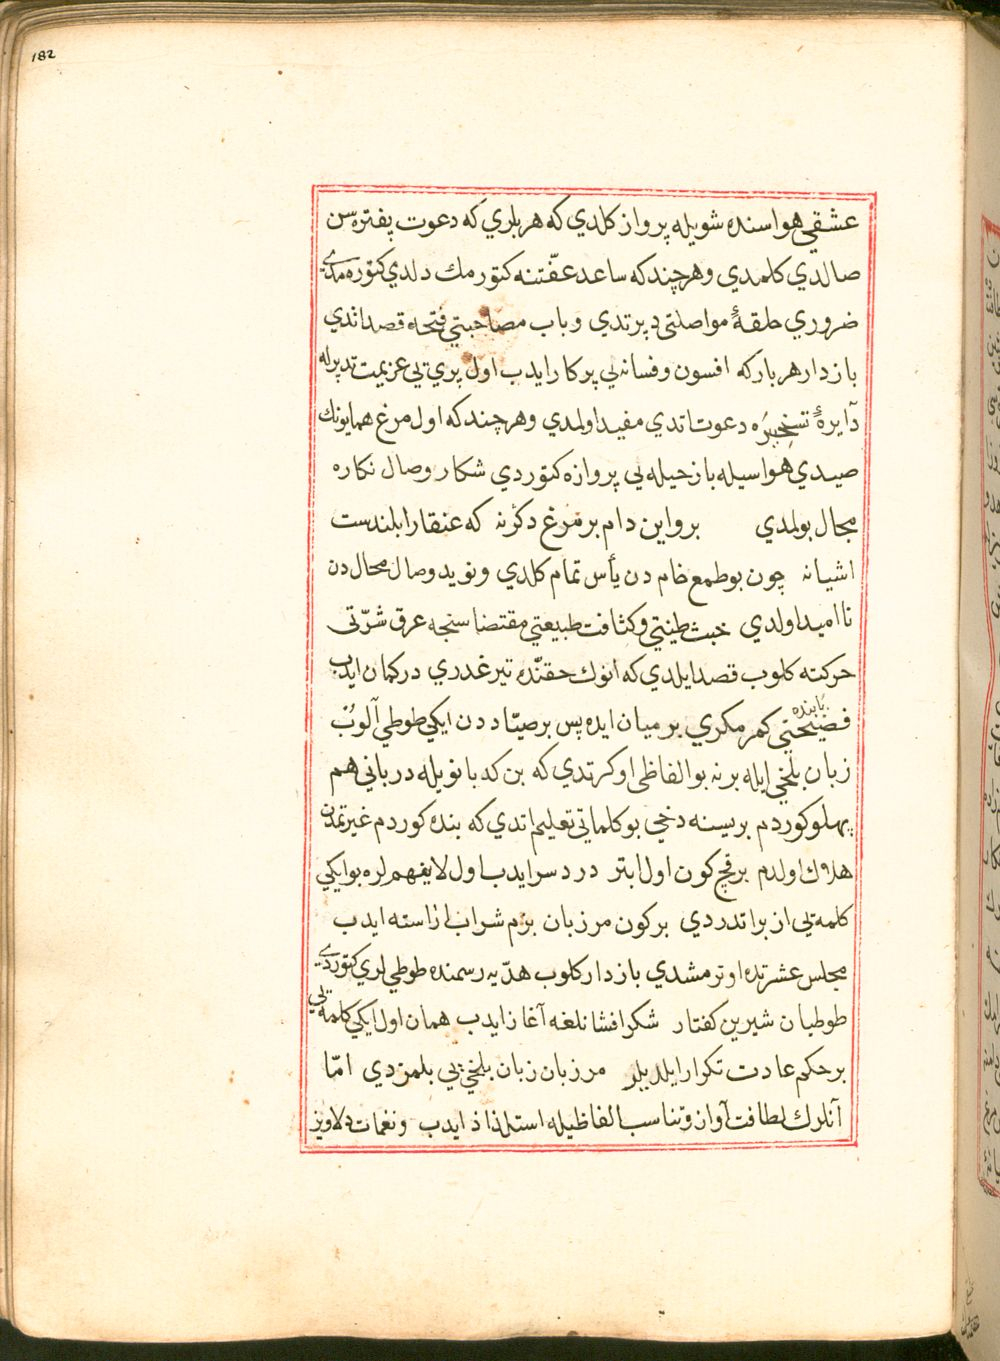 182
عشقي هواسنده شويله پرواز كلدي كه هر باري كه دعوت پفتره سن
صالدي كلمدي وهرچند كه ساعد عفّتنه كتورمك دلدي كتوره مدي
ضروري حلقۀ مواصلتی دپرتدي وباب مصاحبتي فتحه قصد اتدي
بازدار هر بار كه افسون وفسانه لي پركار ايدب اول پري يي عزيمت تدبيرله
دآيرۀ تسخيره دعوت اتدي مفيد اولمدي وهرچند كه اول مرغ همايونك
صيدي هواسيله باز حيله يي پروازه كتوردي شكار وصال نكاره
مجال بولمدي برو اين دام بر مرغ دكر نه كه عنقارا بلندست
اشيانه چون بو طمع خام دن يأس تمام كلدي ونويد وصال محال دن
نا اميد اولدي خبث طينتي وكثافت طبيعتي مقتضاسنجه عرق شرّتی
حركته كلوب قصد ايلدي كه انوك حقنّده تير غدري در كمان ايدب
يابنده
فضيحتي كمر مكري بر ميان ايده پس بر صيّاد دن ايكي طوطي آلوب
زبان بلخي ايله برنه بو الفاظی اوكرتدي كه بن كدبانويله درباني هم
پهلو كوردم بريسنه دخي بو كلماتی تعليم اتدي كه بنده كوردم غيرتمدن
هلاك اولدم بر قچ كون اول ابتر درد سر ايدب اول لا يفهملره بو ايكي
كلمه يي ازبر اتدردي بر كون مرزبان بزم شراب اراسته ايدب
مجلس عشرتده اوترمشدي بازدار كلوب هدّيه رسمنده طوطي لري كتوردي
طوطيان شيرين كفتار شكر افشانلغه آغاز ايدب همان اول ايكي كلمه يي
بر حكم عادت تكرار ايلديلر مرزبان زبان بلخي يي بلمزدي امّا
آنلرك لطافت آواز وتناسب الفاظيله استلذاذ ايدب ونغمات دلاويز